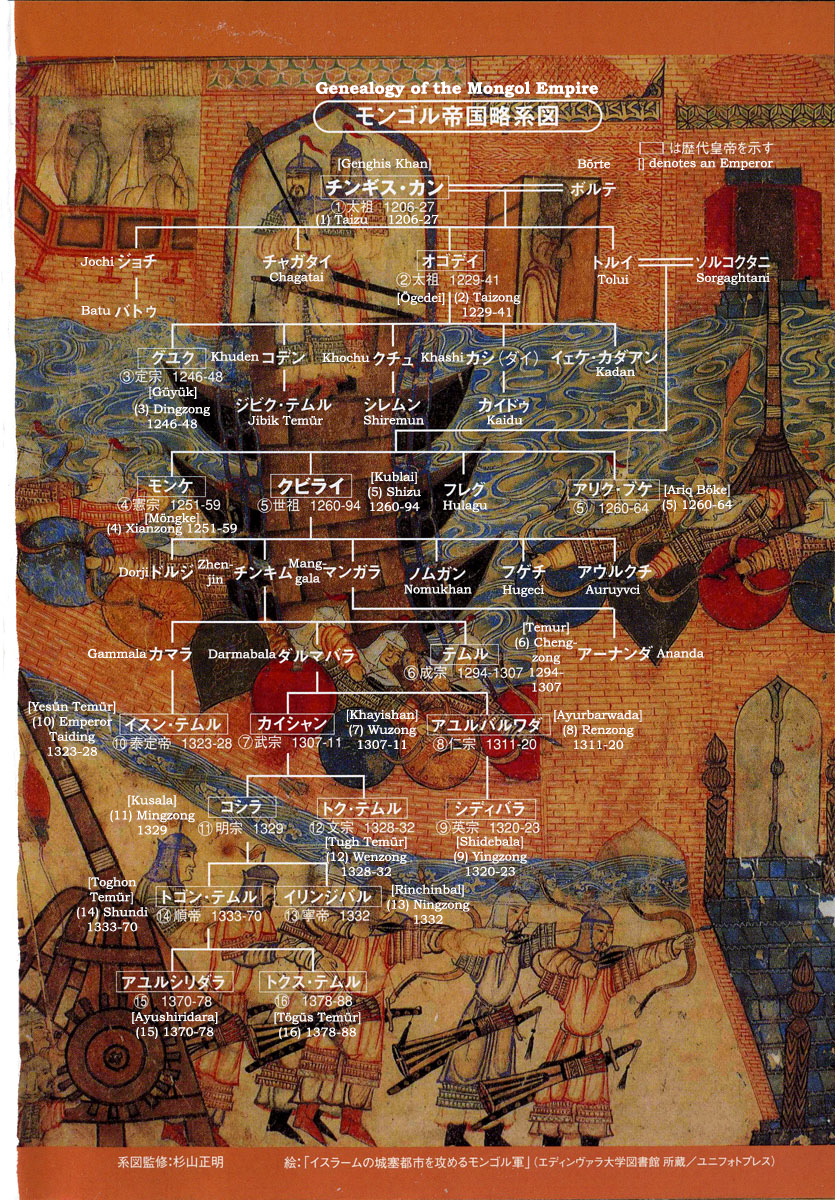 Genealogy of the Mongol Empire
モンゴル帝国略系図
は歴代皇帝を示す
[] denotes an Emperor
[Genghis Khan]
Börte
チンギス・カン
ボルテ
①太祖 1206-27
(1) Taizu 1206-27
Jochi ジョチ
チャガタイ
Chagatai
オゴデイ
②太祖 1229-41
[Ögedei] (2) Taizong
1229-41
トルイ
Tolui
ソルコクタニ
Sorgaghtani
Batu バトゥ
グユク
③定宗 1246-48
[Güyük]
(3) Dingzong
1246-48
Khuden コデン
Khochu クチュ
Khashi カシ(ダイ)
イェケ・カダアン
Kadan
ジビク・テムル
Jibik Temür
シレムン
Shiremun
カイドゥ
Kaidu
モンケ
④憲宗 1251-59
[Möngke]
(4) Xianzong 1251-59
クビライ
⑤世祖 1260-94
[Kublai]
(5) Shizu
1260-94
フレグ
Hulagu
アリク・ブケ
⑤ 1260-64
[Ariq Böke]
(5) 1260-64
Dorji ドルジ
Zhen-
jin
チンキム
Mang-
gala
マンガラ
ノムガン
Nomukhan
フゲチ
Hugeci
アウルクチ
Auruyvci
Gammala カマラ
Darmabala ダルマバラ
テムル
⑥成宗 1294-1307
[Temur]
(6) Cheng-
zong
1294-
1307
アーナンダ Ananda
[Yesün Temür]
(10) Emperor
Taiding
1323-28
イスン・テムル
⑩泰定帝 1323-28
カイシャン
⑦武宗 1307-11
[Khayishan]
(7) Wuzong
1307-11
アユルバルワダ
⑧仁宗 1311-20
[Ayurbarwada]
(8) Renzong
1311-20
[Kusala]
(11) Mingzong
1329
コシラ
⑪明宗 1329
トク・テムル
⑫文宗 1328-32
[Tugh Temür]
(12) Wenzong
1328-32
シディバラ
⑨英宗 1320-23
[Shidebala]
(9) Yingzong
1320-23
[Toghon
Temür]
(14) Shundi
1333-70
トゴン・テムル
⑭順帝 1333-70
イリンジバル
⑬寧帝 1332
[Rinchinbal]
(13) Ningzong
1332
アユルシリダラ
⑮ 1370-78
[Ayushiridara]
(15) 1370-78
トクス・テムル
⑯ 1378-88
[Tögüs Temür]
(16) 1378-88
系図監修:杉山正明
絵:「イスラームの城塞都市を攻めるモンゴル軍」(エディンヴァラ大学図書館 所蔵/ユニフォトプレス)